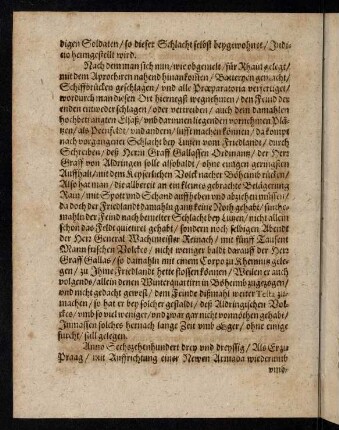 digen Soldaten / so dieser Schlacht selbst beygewohnet / Judi-
no heimgestellt wird.
Nach dem man sich nun / wie obgemelt / für Rhain gelegt /
mit dem Aprochiren nahend hinan kom̃en / Batterpen gemacht /
Schiffbrücken geschlagen / vnd alle Præparatoria verfertiget /
wordurch man diesen Ort hienegst wegnehmen / den Feind der
enden entweder schlagen / oder vertreiben / auch dem damahlen
hochbetrangten Elsaß / vnd darinnen liegenden vornehmen Plä-
tzen / als Brensfeldt / vnd andern / lufft machen können / da kompt
nach vorgangener Schlacht bey Lützen vom Friedlandt / durch
Schreiben / deß Herrn Graff Gallassen Ordinantz / der Herr
Graff von Aldringen solle alsobaldt / ohne eintzigen geringsten
Auffhalt / mit dem Keyserlichen Volck nacher Böheimb rücken /
Also hat man / die allbereit an ein kleines gebrachte Belägerung
Rain / mit Spott vnd Schand auffheben vnd abziehen müssen /
da doch der Friedlandt damahln gantz keine Noth gehabt / sinthe-
mahln der Feind nach bemelter Schlacht bey Lützen / nicht allein
schon das Feldt quietiret gehabt / sondern noch selbigen Abendt
der Herr General Wachtmeister Reinach / mit fünff Tausent
Mann frischen Volckes / nicht weniger baldt darauff der Herr
Graff Gallas / so damahln mit einem Corpo zu Rhemnus gele-
gen / zu Ihme Friedlandt hette stossen können / Weilen er auch
volgendts / allein denen Winterquartirn in Böheimb zugezogen /
vnd nicht gedacht gewest / dem Feinde dißmahl weiter Teltz zu-
machen / so hat er bey solcher gestaldt / deß Aldringischen Vol-
ckes / vmb so viel weniger / vnd zwar gar nicht vonnöthen gehabt /
Inmassen solches hernach lange Zeit vmb Eger / ohne einige
furcht / still gelegen.
Anno Sechszehenhundert drey vnd dreyssig / Als Er zu
Praag / mit Auffrichtung einer Newen Armada wiederumb
vmb-